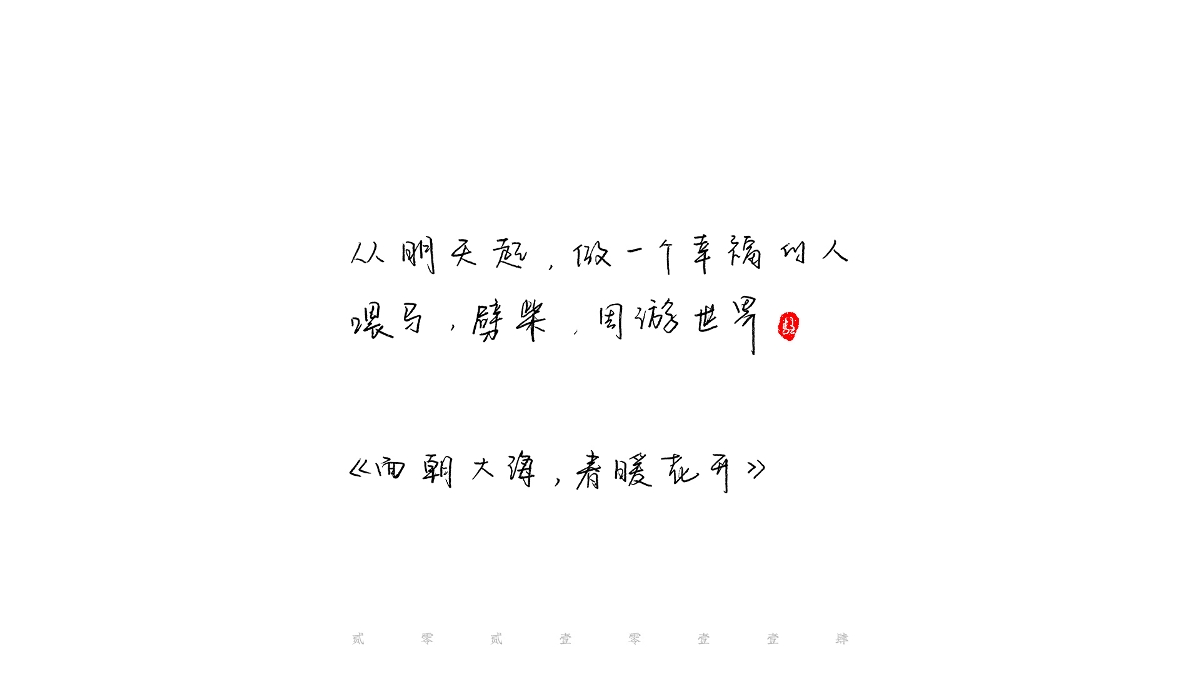 从明天起，做一个幸福的人
喂马，劈柴，周游世界
《面朝大海，春暖花开》
贰零贰壹零壹壹肆